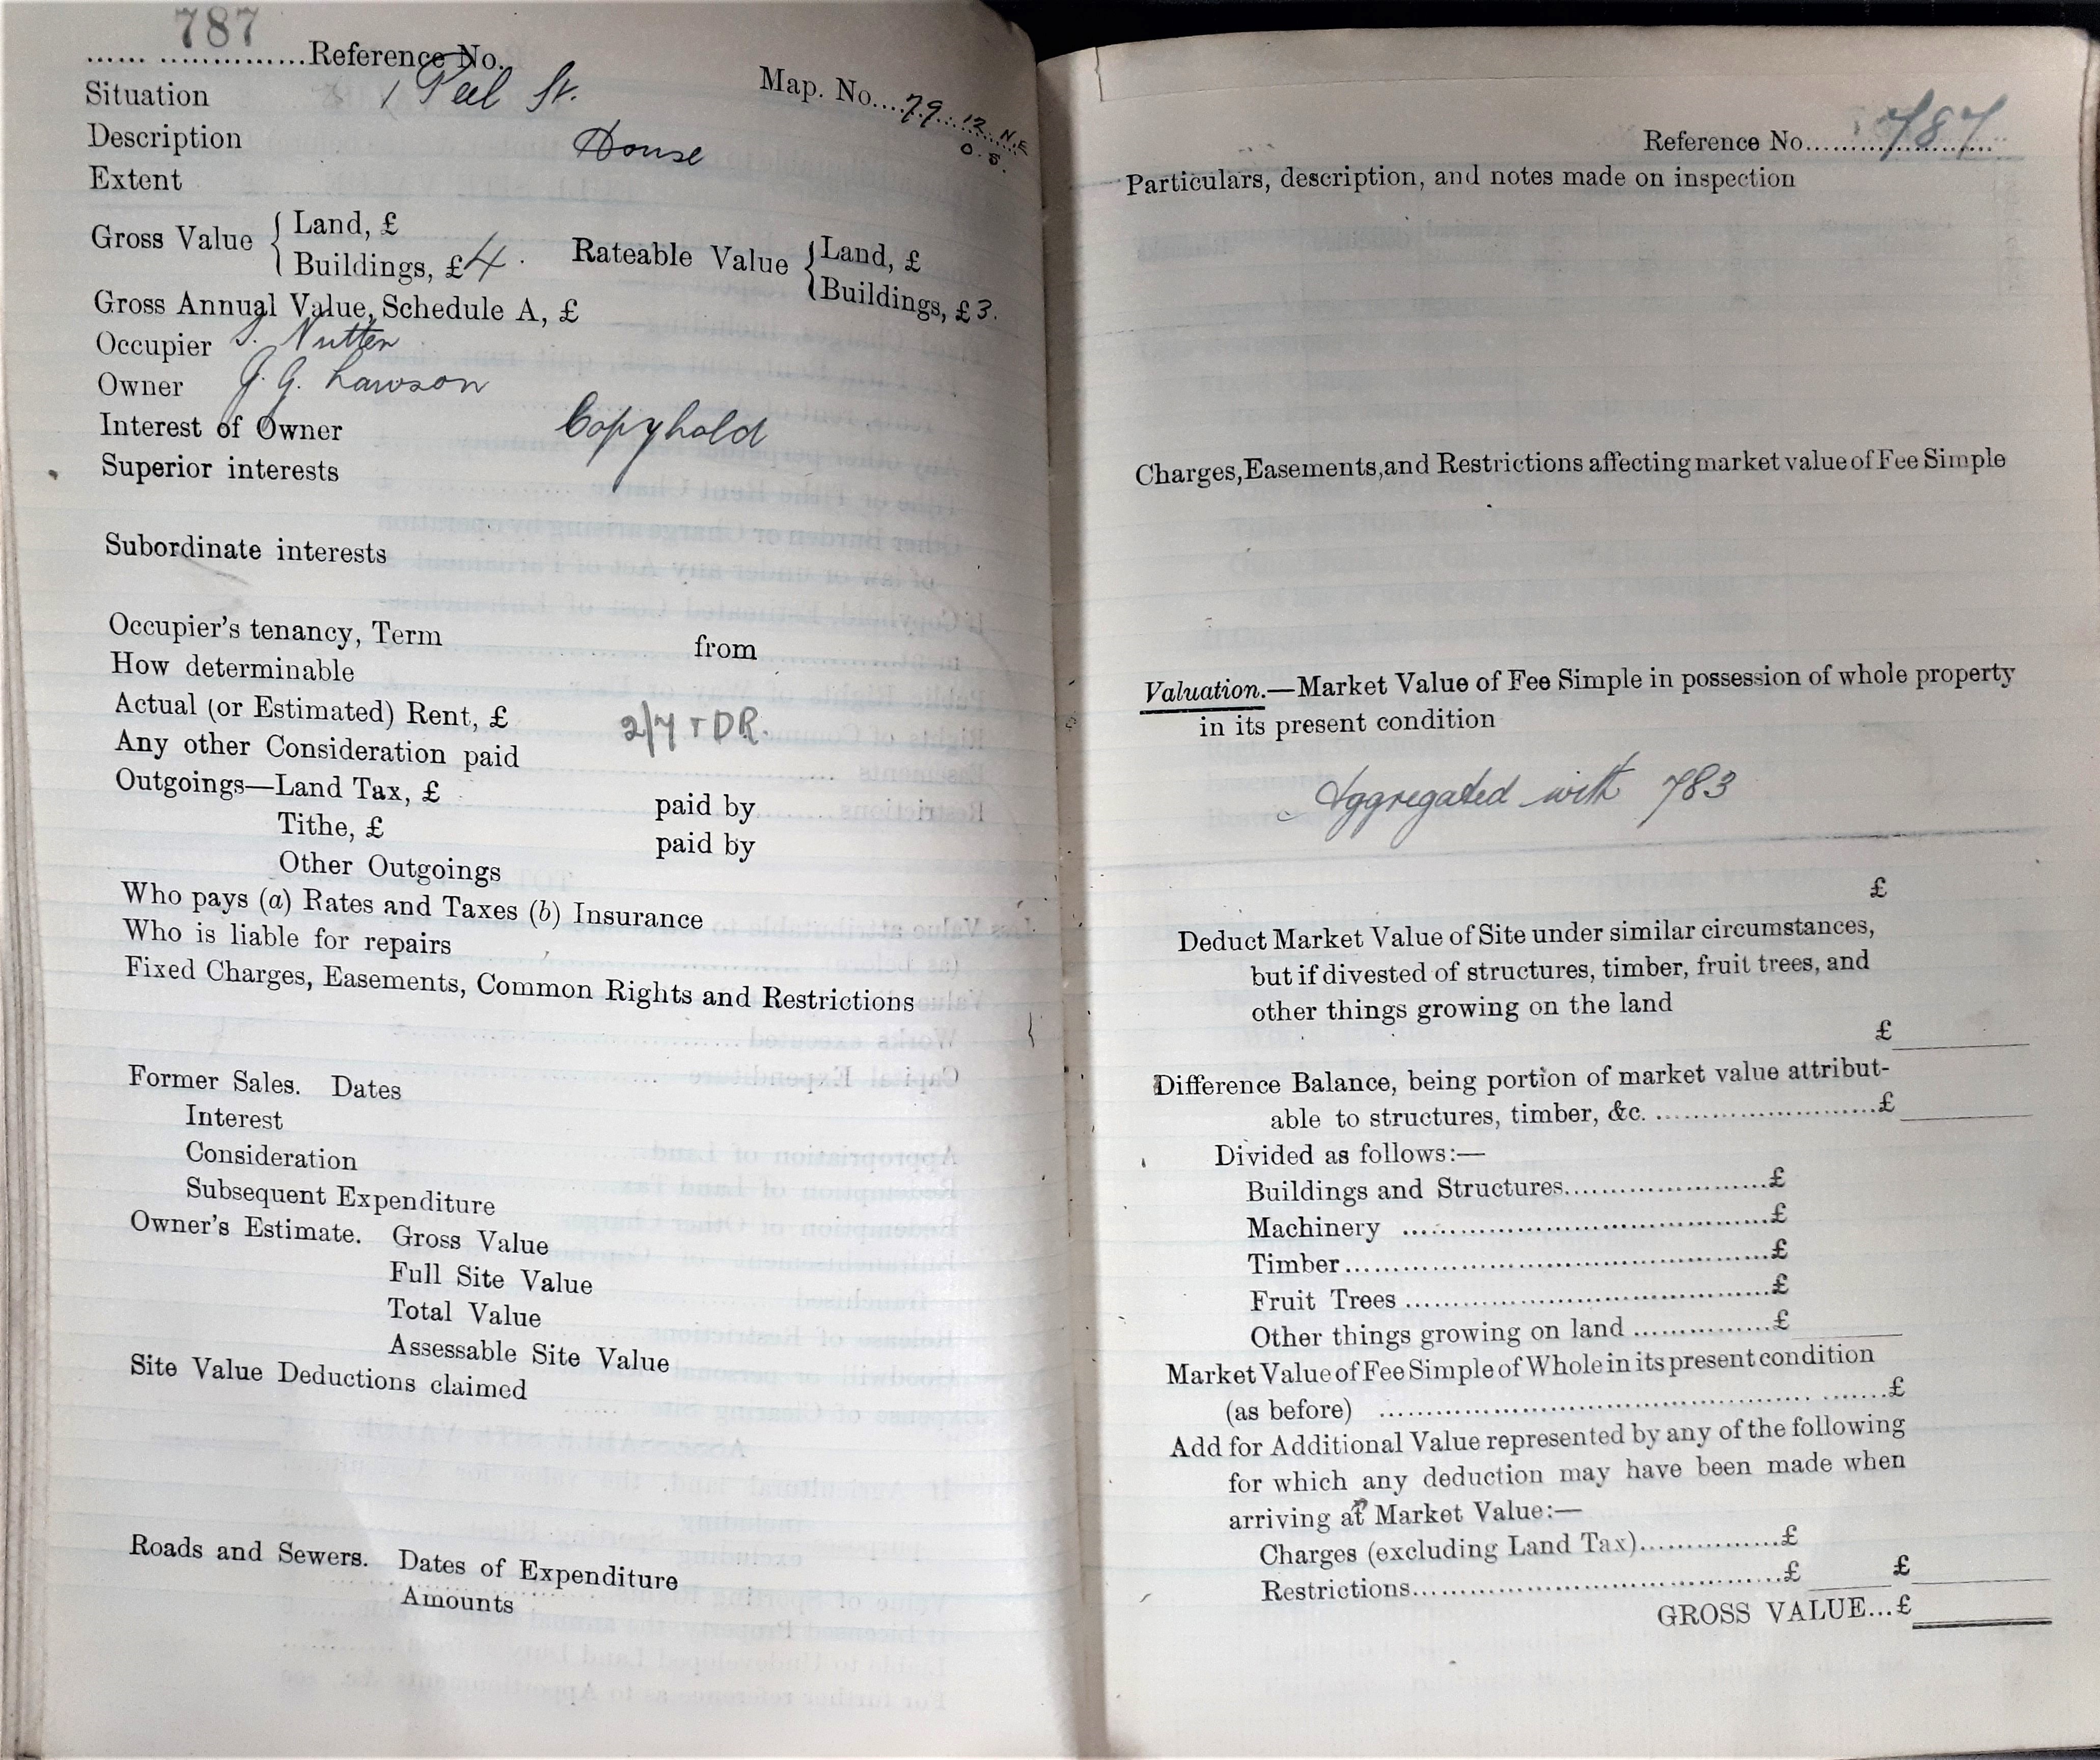 787
...... ..............Reference No.
Situation 1 Peel St. Map. No....79...12 N.E
Description House
Extent
Gross Value { Land, £
Buildings, £4. Rateable Value { Land, £
Buildings, £3.
Gross Annual Value, Schedule A, £
Occupier Nutten
Owner J. G. Lawson
Interest of Owner Copyhold
Superior interests
Subordinate interests
Occupier's tenancy, Term from
How determinable
Actual (or Estimated) Rent, £ 2/7 TDR.
Any other Consideration paid
Outgoings—Land Tax, £ paid by
Tithe, £ paid by
Other Outgoings
Who pays (a) Rates and Taxes (b) Insurance
Who is liable for repairs
Fixed Charges, Easements, Common Rights and Restrictions
Former Sales. Dates
Interest
Consideration
Subsequent Expenditure
Owner's Estimate. Gross Value
Full Site Value
Total Value
Assessable Site Value
Site Value Deductions claimed
Roads and Sewers. Dates of Expenditure
Amounts
Reference No......787......
Particulars, description, and notes made on inspection
Charges, Easements, and Restrictions affecting market value of Fee Simple
Valuation.—Market Value of Fee Simple in possession of whole property
in its present condition
Aggregated with 783
£
Deduct Market Value of Site under similar circumstances,
but if divested of structures, timber, fruit trees, and
other things growing on the land
£
Difference Balance, being portion of market value attribut-
able to structures, timber, &c. ........................£
Divided as follows:—
Buildings and Structures......................£
Machinery ......................................£
Timber............................................£
Fruit Trees ......................................£
Other things growing on land ...............£
Market Value of Fee Simple of Whole in its present condition
(as before) ..................................................£
Add for Additional Value represented by any of the following
for which any deduction may have been made when
arriving at Market Value:—
Charges (excluding Land Tax)...............£
Restrictions......................................£ £
GROSS VALUE...£